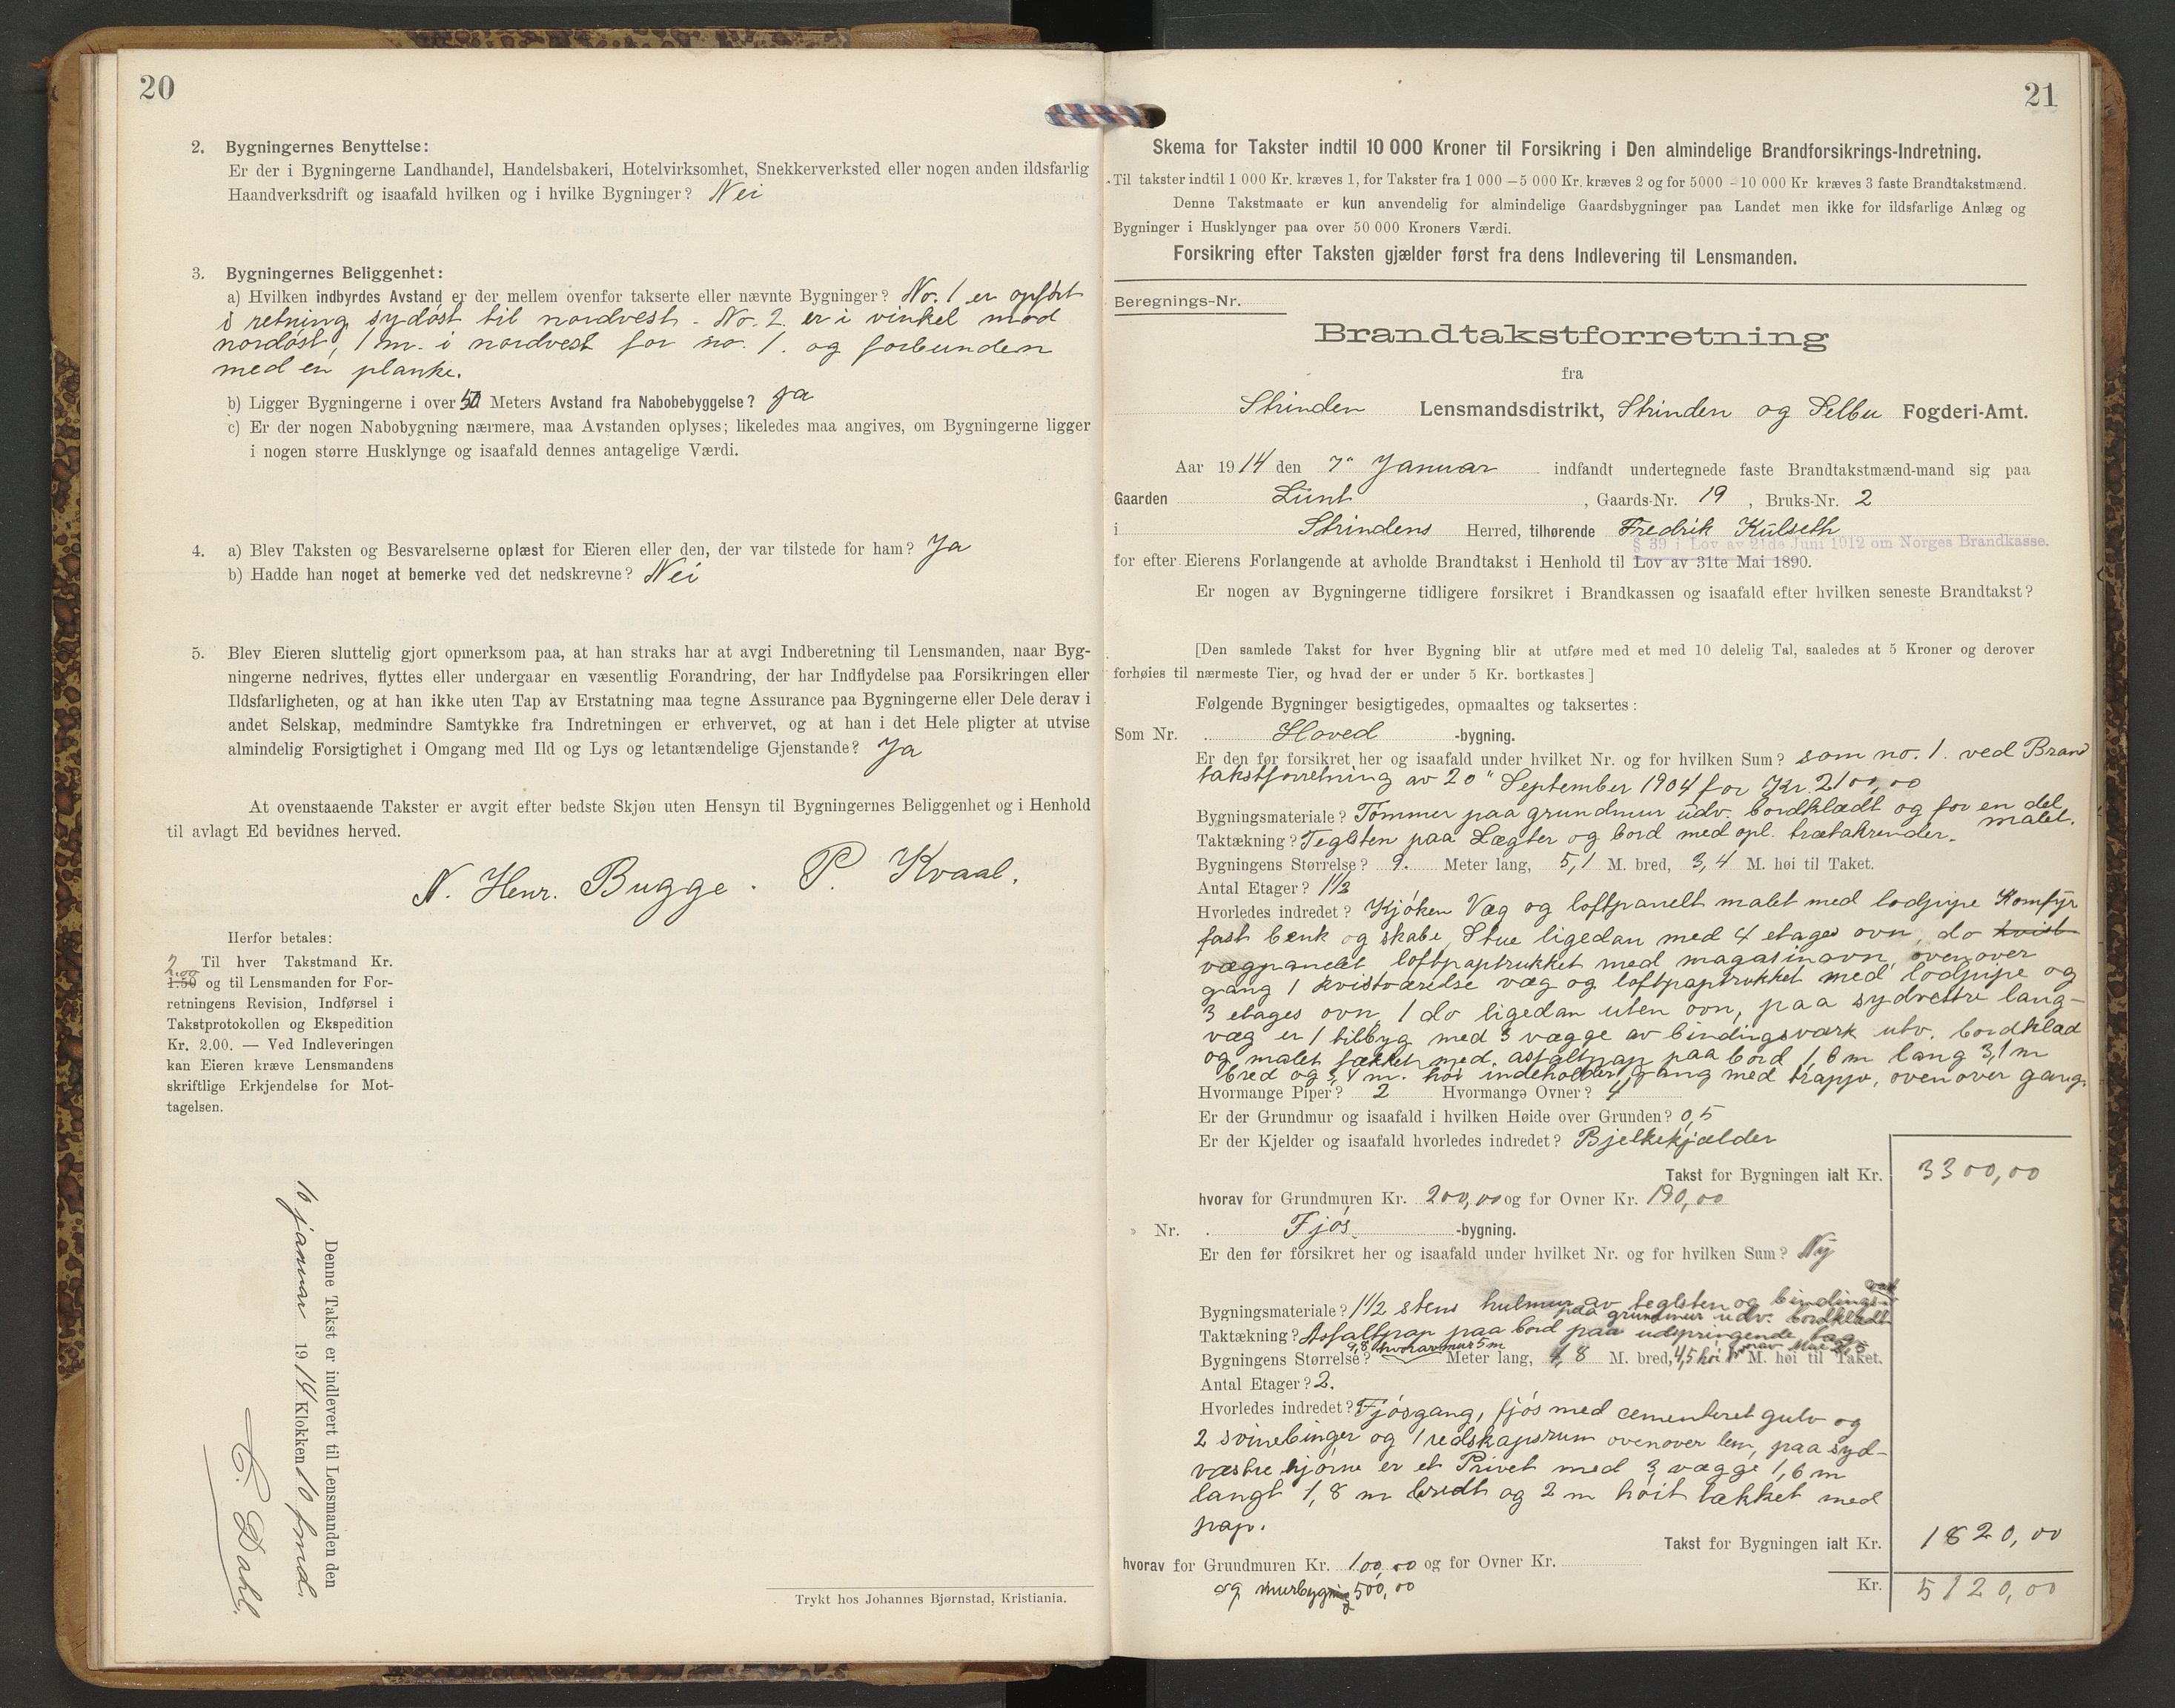 20
2. Bygningernes Benyttelse:
Er der i Bygningerne Landhandel, Handelsbakeri, Hotelvirksomhet, Snekkerverksted eller nogen anden ildsfarlig
Haandverksdrift og isaafald hvilken og i hvilke Bygninger? Nei
3. Bygningernes Beliggenhet:
a) Hvilken indbyrdes Avstand er der mellem ovenfor takserte eller nævnte Bygninger? No. 1 er opført
i retning sydøst til nordvest. No. 2. er i vinkel mod
nordøst, 1 m. i nordvest for no. 1. og forbunden
med en planke.
b) Ligger Bygningerne i over 50 Meters Avstand fra Nabobebyggelse? Ja
c) Er der nogen Nabobygning nærmere, maa Avstanden oplyses; likeledes maa angives, om Bygningerne ligger
i nogen større Husklynge og isaafald dennes antagelige Værdi.
4. a) Blev Taksten og Besvarelserne oplæst for Eieren eller den, der var tilstede for ham? Ja
b) Hadde han noget at bemerke ved det nedskrevne? Nei
5. Blev Eieren sluttelig gjort opmerksom paa, at han straks har at avgi Indberetning til Lensmanden, naar Byg-
ningerne nedrives, flyttes eller undergaar en væsentlig Forandring, der har Indflydelse paa Forsikringen eller
Ildsfarligheten, og at han ikke uten Tap av Erstatning maa tegne Assurance paa Bygningerne eller Dele derav i
andet Selskap, medmindre Samtykke fra Indretningen er erhvervet, og at han i det Hele pligter at utvise
almindelig Forsigtighet i Omgang med Ild og Lys og letantændelige Gjenstande? Ja
At ovenstaaende Takster er avgit efter bedste Skjøn uten Hensyn til Bygningernes Beliggenhet og i Henhold
til avlagt Ed bevidnes herved.
N. Henr. Bugge. P. Kvaal.
Herfor betales:
Til hver Takstmand Kr.
2.00
1.50 og til Lensmanden for For-
retningens Revision, Indførsel i
Takstprotokollen og Ekspedition
Kr. 2.00. — Ved Indleveringen
kan Eieren kræve Lensmandens
skriftlige Erkjendelse for Mot-
tagelsen.
Denne Takst er indlevert til Lensmanden den
10 januar 1914 Klokken 10 fmd.
C. Dahl.
Trykt hos Johannes Bjørnstad, Kristiania.
21
Skema for Takster indtil 10 000 Kroner til Forsikring i Den almindelige Brandforsikrings-Indretning.
Til takster indtil 1 000 Kr. kræves 1, for Takster fra 1 000 – 5 000 Kr. kræves 2 og for 5000 – 10 000 Kr kræves 3 faste Brandtakstmænd.
Denne Takstmaate er kun anvendelig for almindelige Gaardsbygninger paa Landet men ikke for ildsfarlige Anlæg og
Bygninger i Husklynger paa over 50 000 Kroners Værdi.
Forsikring efter Taksten gjælder først fra dens Indlevering til Lensmanden.
Beregnings-Nr.
Brandtakstforretning
fra
Strinden Lensmandsdistrikt, Strinden og Selbu Fogderi-Amt.
Aar 1914 den 7" Januar indfandt undertegnede faste Brandtakstmænd-mand sig paa
Gaarden Lünt, Gaards-Nr. 19, Bruks-Nr. 2
i Strindens Herred, tilhørende Fredrik Külseth
§ 39 i Lov av 21de Juni 1912 om Norges Brandkasse.
for efter Eierens Forlangende at avholde Brandtakst i Henhold til Lov av 31te Mai 1890.
Er nogen av Bygningerne tidligere forsikret i Brandkassen og isaafald efter hvilken seneste Brandtakst?
[Den samlede Takst for hver Bygning blir at utføre med et med 10 delelig Tal, saaledes at 5 Kroner og derover
forhøies til nærmeste Tier, og hvad der er under 5 Kr. bortkastes]
Følgende Bygninger besigtigedes, opmaaltes og taksertes:
Som Nr. Hoved -bygning.
Er den før forsikret her og isaafald under hvilket Nr. og for hvilken Sum? som no. 1. ved Brand
takstforretning av 20" September 1904 for Kr. 2100,00
Bygningsmateriale? Tømmer paa grundmur udv. bordklædt og for en del
malet.
Taktækning? Teglsten paa Lægter og bord med opl. trætakrender.
Bygningens Størrelse? 9. Meter lang, 5,1 M. bred, 3,4 M. høi til Taket.
Antal Etager? 1½
Hvorledes indredet? Kjøken Væg og loftpanelt malet med lodpipe Komfyr
fast bænk og skabe, Stue ligedan med 4 etages ovn, do kvist
vægpanelet loftpaptrukket med magasinovn, ovenover
gang 1 kvistværelse væg og loftpaptrukket med lodpipe og
3 etages ovn, 1 do ligedan uten ovn, paa sydvestre lang-
væg er 1 tilbyg med 3 vægge av bindingsværk utv. bordklæd
og malet tækket med asfaltpap paa bord 1,6 m lang 3,1 m
bred og 3,4 m. høi indeholder gang med trappe, ovenover gang.
Hvormange Piper? 2 Hvormange Ovner? 4
Er der Grundmur og isaafald i hvilken Høide over Grunden? 0,5
Er der Kjelder og isaafald hvorledes indredet? Bjelkekjælder
Takst for Bygningen ialt Kr. 3300,00
hvorav for Grundmuren Kr. 200,00 og for Ovner Kr. 190,00
» Nr. Fjøs -bygning.
Er den før forsikret her og isaafald under hvilket Nr. og for hvilken Sum? Ny
Bygningsmateriale? 1½ stens hulmur av teglsten og bindings-
paa grundmur udv. bordklædt
Taktækning? Asfaltpap paa bord paa udspringende tag
9,8 hvorav mur 5 m
Bygningens Størrelse? Meter lang, 4,8 M. bred, 4,5 høi M. høi til Taket.
Antal Etager? 2.
Hvorledes indredet? Fjøsgang, fjøs med cementeret gulv og
2 svinebinger og 1 redskapsrum ovenover lem, paa syd-
væstre hjørne er et Privet med 3 vægge 1,6 m
langt 1,8 m bredt og 2 m høit tækket med
pap.
Takst for Bygningen ialt Kr. 1820,00
hvorav for Grundmuren Kr. 100,00 og for Ovner Kr.
og murbygning 500,00
Kr. 5120,00